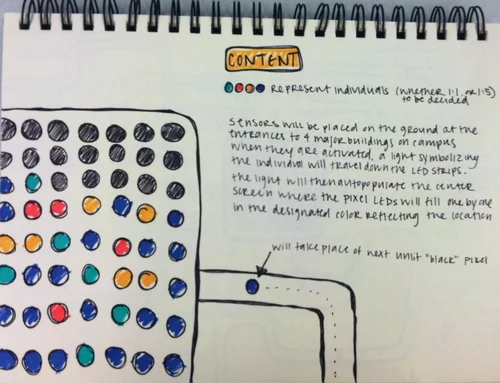 CONTENT
represent individuals (whether 1:1, or 1:5)
to be decided
Sensors will be placed on the ground at the
entrances to 4 major buildings on campus
when they are activated, a light symbolizing
the individual will travel down the LED strips.
the light will then autopopulate the center
screen where the pixel LEDs will fill one by one
in the designated color reflecting the location
will take place of next unlit "black" pixel